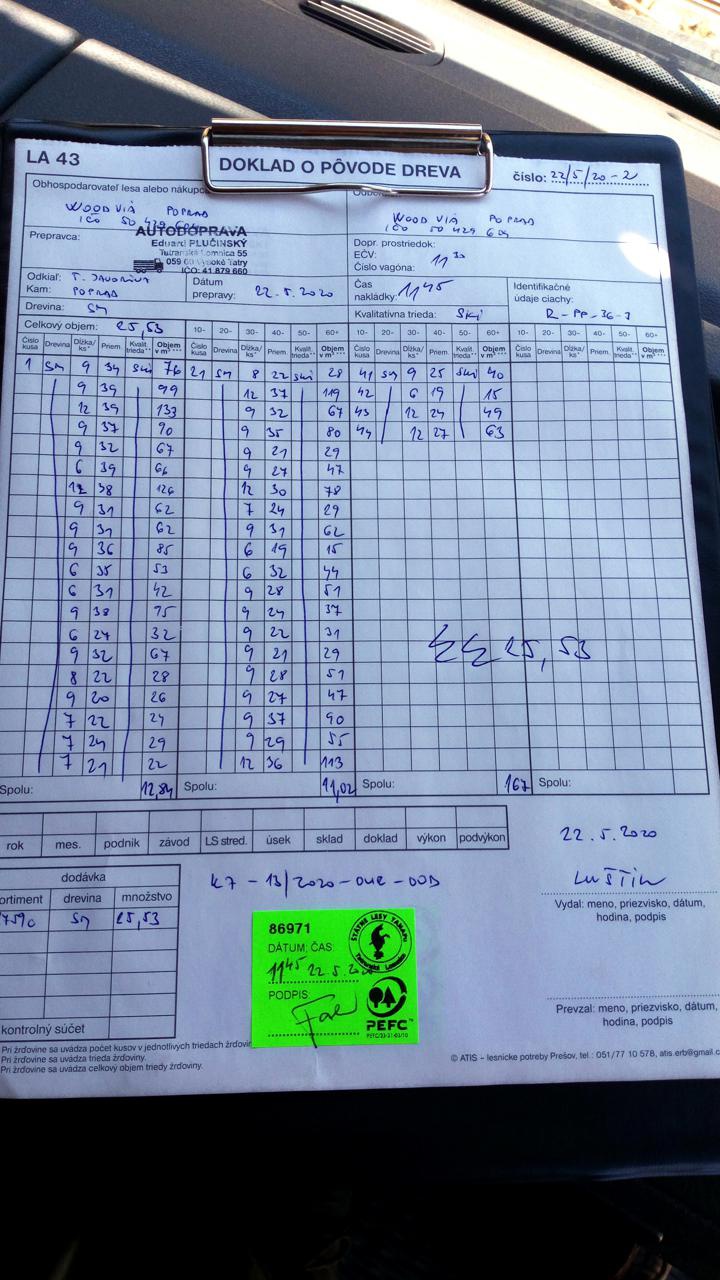 LA 43
DOKLAD O PÔVODE DREVA
číslo: 22/5/20-2
Obhospodarovateľ lesa alebo nákupc
WOOD VIA POPRAD
IČO 50 429 604
WOOD VIA POPRAD
IČO 50 429 604
Prepravca:
AUTODOPRAVA
Eduard PLUČINSKÝ
Tatranská Lomnica 55
059 60 Vysoké Tatry
IČO: 41 879 660
Dopr. prostriedok:
EČV:
Číslo vagóna:
11 30
Odkiaľ: T. JAVORINA
Kam: POPRAD
Dátum prepravy: 22.5.2020
Čas nakládky: 11 45
Identifikačné údaje ciachy:
R-PP-36-7
Drevina: SM
Kvalitatívna trieda:
Celkový objem: 25,53
10- 20- 30- 40- 50- 60+ 10- 20- 30- 40- 50- 60+ 10- 20- 30- 40- 50- 60+
Číslo kusa Drevina Dĺžka/ks* Priem. Kvalit. trieda** Objem v m³*** Číslo kusa Drevina Dĺžka/ks* Priem. Kvalit. trieda** Objem v m³*** Číslo kusa Drevina Dĺžka/ks* Priem. Kvalit. trieda** Objem v m³*** Číslo kusa Drevina Dĺžka/ks* Priem. Kvalit. trieda** Objem v m³***
1 SM 9 34 76 21 SM 8 22 28 41 SM 9 25 40
9 39 99 12 37 119 42 6 19 15
12 39 133 9 32 67 43 12 24 49
9 37 90 9 35 80 44 12 27 63
9 32 67 9 21 29
6 39 66 9 27 47
12 38 126 12 30 78
9 31 62 7 24 29
9 31 62 9 31 62
9 36 85 6 19 15
6 35 53 6 32 44
6 31 42 9 28 51
9 38 95 9 24 37
6 27 32 9 22 31
9 32 67 9 21 29
8 22 28 9 28 51
9 20 26 9 27 47
7 22 24 9 37 90
7 24 29 9 29 55
7 21 22 12 36 113
25,53
Spolu: 12,84 Spolu: 11,02 Spolu: 167 Spolu:
rok mes. podnik závod LS stred. úsek sklad doklad výkon podvýkon
22.5.2020
dodávka
ortiment drevina množstvo
SM 25,53
kontrolný súčet
LUŠTÍK
Vydal: meno, priezvisko, dátum,
hodina, podpis
Prevzal: meno, priezvisko, dátum,
hodina, podpis
86971
DÁTUM, ČAS:
11 45 22.5.20
PODPIS:
ŠTÁTNE LESY TANAPU
Tatranská Lomnica
PEFC™
Pri žrďovine sa uvádza počet kusov v jednotlivých triedach žrďovin
Pri žrďovine sa uvádza trieda žrďoviny.
Pri žrďovine sa uvádza celkový objem triedy žrďoviny.
© ATIS – lesnícke potreby Prešov, tel.: 051/77 10 578, atis.erb@gmail.c